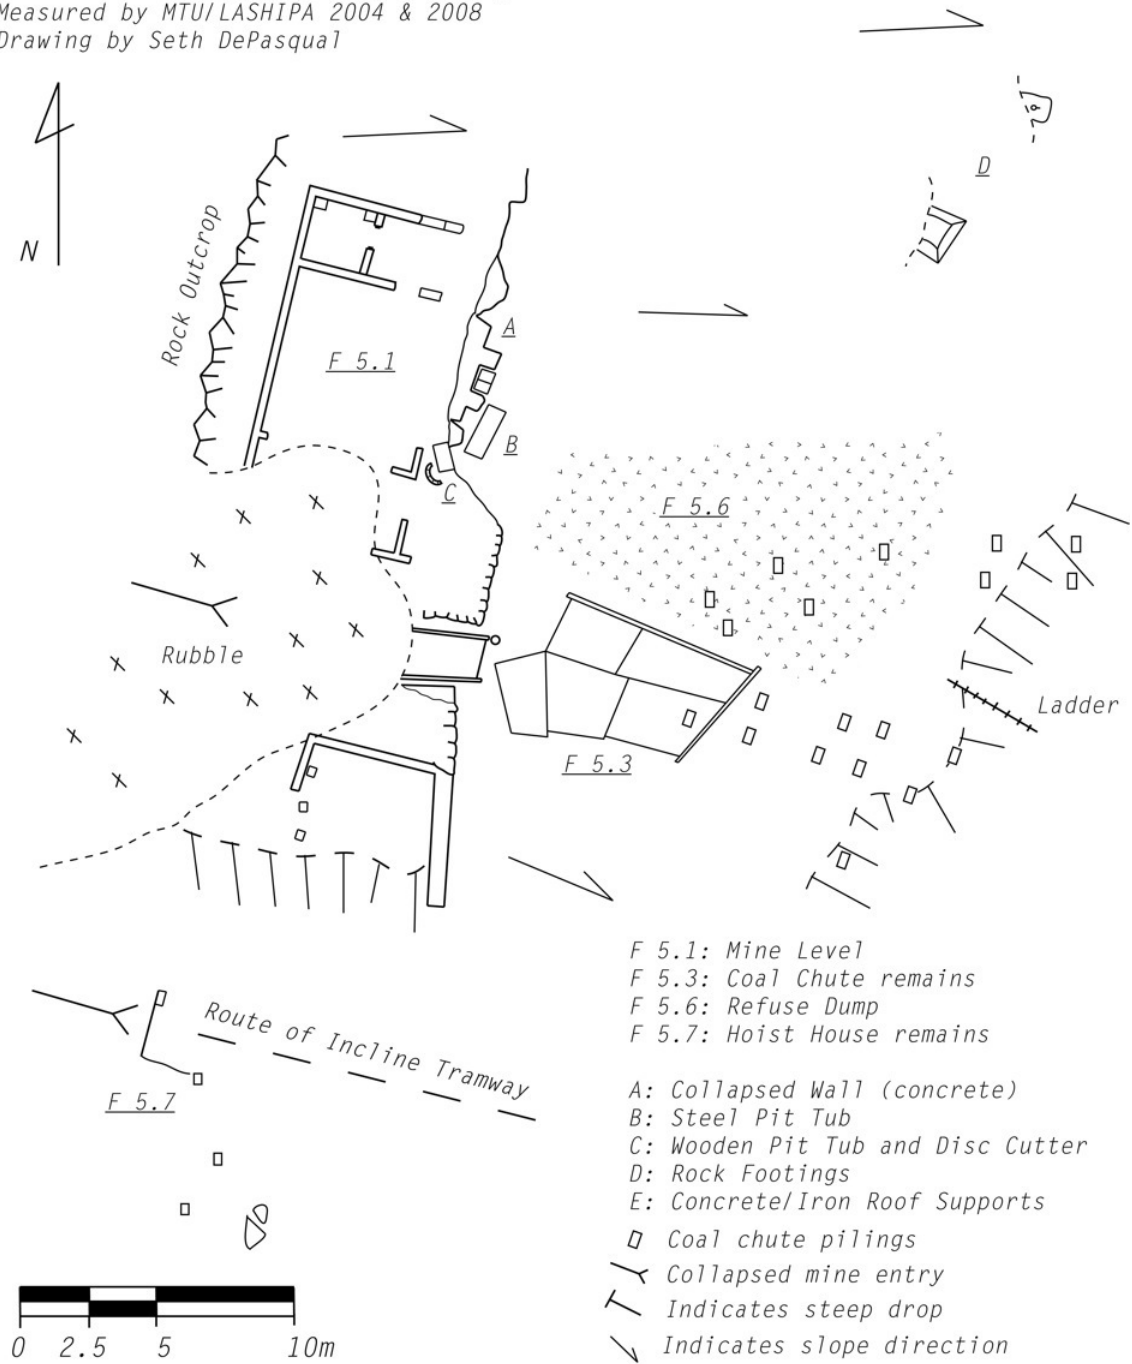 Measured by MTU/LASHIPA 2004 & 2008
Drawing by Seth DePasqual
D
N
Rock Outcrop
A
F 5.1
B
C
F 5.6
Rubble
Ladder
F 5.3
Route of Incline Tramway
F 5.7
F 5.1: Mine Level
F 5.3: Coal Chute remains
F 5.6: Refuse Dump
F 5.7: Hoist House remains
A: Collapsed Wall (concrete)
B: Steel Pit Tub
C: Wooden Pit Tub and Disc Cutter
D: Rock Footings
E: Concrete/Iron Roof Supports
Coal chute pilings
Collapsed mine entry
Indicates steep drop
Indicates slope direction
0 2.5 5 10m